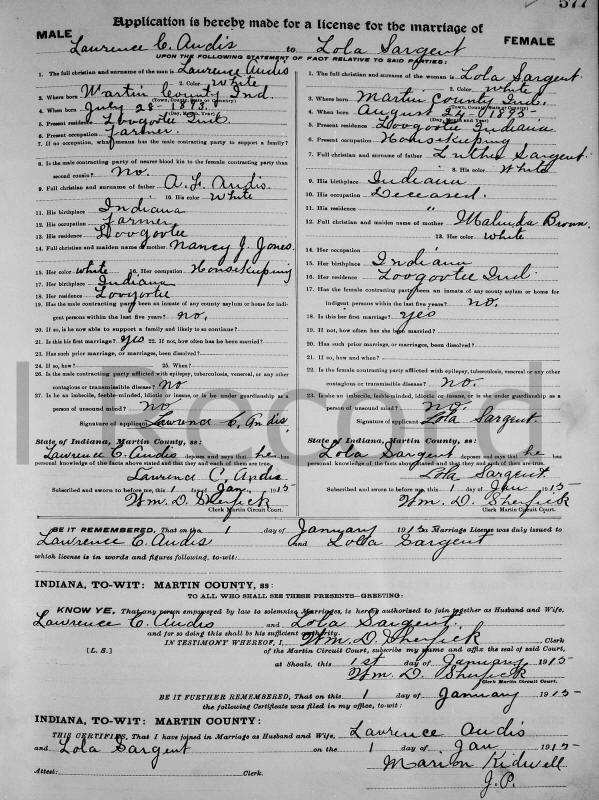 577
Application is hereby made for a license for the marriage of
MALE FEMALE
Lawrence C. Audis to Lola Sargent
UPON THE FOLLOWING STATEMENT OF FACT RELATIVE TO SAID PARTIES:
1. The full christian and surname of the man is Lawrence Audis
2. Color White
3. Where born Martin County Ind.
(Town, County, State or Country)
4. When born July 28 - 1893.
(Day, Month and Year)
5. Present residence Loogootee Ind.
6. Present occupation Farmer.
7. If no occupation, what means has the male contracting party to support a family?
8. Is the male contracting party of nearer blood kin to the female contracting party than
second cousin? No.
9. Full christian and surname of father A. F. Audis.
10. His color White
11. His birthplace Indiana
12. His occupation Farmer
13. His residence Loogootee
14. Full christian and maiden name of mother Nancy J. Jones.
15. Her color White 16. Her occupation Housekeeping
17. Her birthplace Indiana
18. Her residence Loogootee
19. Has the male contracting party been an inmate of any county asylum or home for indi-
gent persons within the last five years? no.
20. If so, is he now able to support a family and likely to so continue?
21. Is this his first marriage? yes 22. If not, how often has he been married?
23. Has such prior marriage, or marriages, been dissolved?
24. If so, how? 25. When?
26. Is the male contracting party afflicted with epilepsy, tuberculosis, venereal, or any other
contagious or transmissible disease? No
27. Is he an imbecile, feeble-minded, idiotic or insane, or is he under guardianship as a
person of unsound mind? No
Signature of applicant Lawrence C. Audis
State of Indiana, Martin County, ss:
Lawrence C. Audis deposes and says that he has
personal knowledge of the facts above stated and that they and each of them are true.
Lawrence C. Audis
Subscribed and sworn to before me, this 1 day of Jan. 1915
Wm. D. Sherfick
Clerk Martin Circuit Court.
1. The full christian and surname of the woman is Lola Sargent.
2. Color White
3. Where born Martin County Ind.
(Town, County, State or Country)
4. When born August 24 - 1895
(Day, Month and Year)
5. Present residence Loogootee Indiana
6. Present occupation Housekeeping
7. Full christian and surname of father Luther Sargent.
8. His color White
9. His birthplace Indiana
10. His occupation Deceased.
11. His residence "
12. Full christian and maiden name of mother Malinda Brown.
13. Her color White
14. Her occupation
15. Her birthplace Indiana
16. Her residence Loogootee Ind
17. Has the female contracting party been an inmate of any county asylum or home for
indigent persons within the last five years? no.
18. Is this her first marriage? yes
19. If not, how often has she been married?
20. Has such prior marriage, or marriages, been dissolved?
21. If so, how and when?
22. Is the female contracting party afflicted with epilepsy, tuberculosis, venereal or any other
contagious or transmissible disease? no.
23. Is she an imbecile, feeble-minded, idiotic or insane, or is she under guardianship as a
person of unsound mind? No.
Signature of applicant Lola Sargent.
State of Indiana, Martin County, ss:
Lola Sargent deposes and says that he has
personal knowledge of the facts above stated and that they and each of them are true.
Lola Sargent.
Subscribed and sworn to before me, this 1 day of Jan 1915
Wm. D. Sherfick
Clerk Martin Circuit Court.
BE IT REMEMBERED, That on the 1 day of January 1915 a Marriage License was duly issued to
Lawrence C. Audis and Lola Sargent
which license is in words and figures following, to-wit:
INDIANA, TO-WIT: MARTIN COUNTY, ss:
TO ALL WHO SHALL SEE THESE PRESENTS—GREETING:
KNOW YE, That any person empowered by law to solemnize Marriages, is hereby authorized to join together as Husband and Wife,
Lawrence C. Audis and Lola Sargent.
and for so doing this shall be his sufficient authority.
IN TESTIMONY WHEREOF, I, Wm. D. Sherfick Clerk
[L. S.] of the Martin Circuit Court, subscribe my name and affix the seal of said Court
at Shoals, this 1st day of January 1915
Wm. D. Sherfick
Clerk Martin Circuit Court.
BE IT FURTHER REMEMBERED, That on this 1 day of January 1915
the following Certificate was filed in my office, to-wit:
INDIANA, TO-WIT: MARTIN COUNTY:
THIS CERTIFIES, That I have joined in Marriage as Husband and Wife, Lawrence Audis
and Lola Sargent on the 1 day of Jan 1915
Marion Kidwell
J.P.
Attest: Clerk.